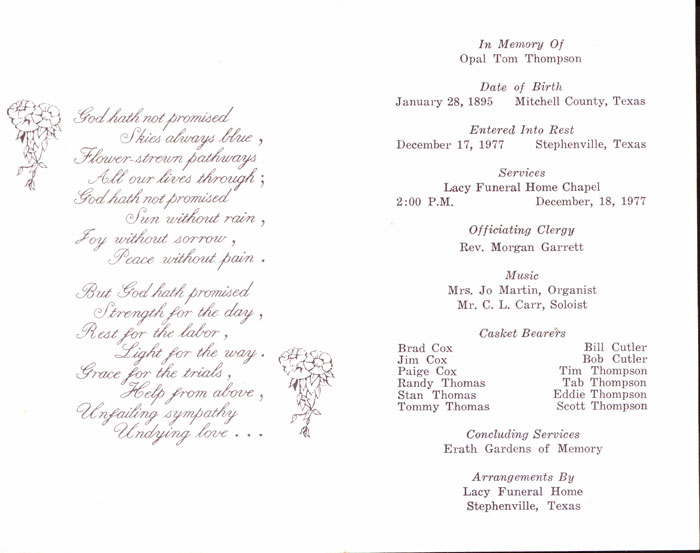 God hath not promised
Skies always blue,
Flower-strewn pathways
All our lives through;
God hath not promised
Sun without rain,
Joy without sorrow,
Peace without pain.
But God hath promised
Strength for the day,
Rest for the labor,
Light for the way.
Grace for the trials,
Help from above,
Unfailing sympathy
Undying love...
In Memory Of
Opal Tom Thompson
Date of Birth
January 28, 1895 Mitchell County, Texas
Entered Into Rest
December 17, 1977 Stephenville, Texas
Services
Lacy Funeral Home Chapel
2:00 P.M. December, 18, 1977
Officiating Clergy
Rev. Morgan Garrett
Music
Mrs. Jo Martin, Organist
Mr. C. L. Carr, Soloist
Casket Bearers
Brad Cox Bill Cutler
Jim Cox Bob Cutler
Paige Cox Tim Thompson
Randy Thomas Tab Thompson
Stan Thomas Eddie Thompson
Tommy Thomas Scott Thompson
Concluding Services
Erath Gardens of Memory
Arrangements By
Lacy Funeral Home
Stephenville, Texas